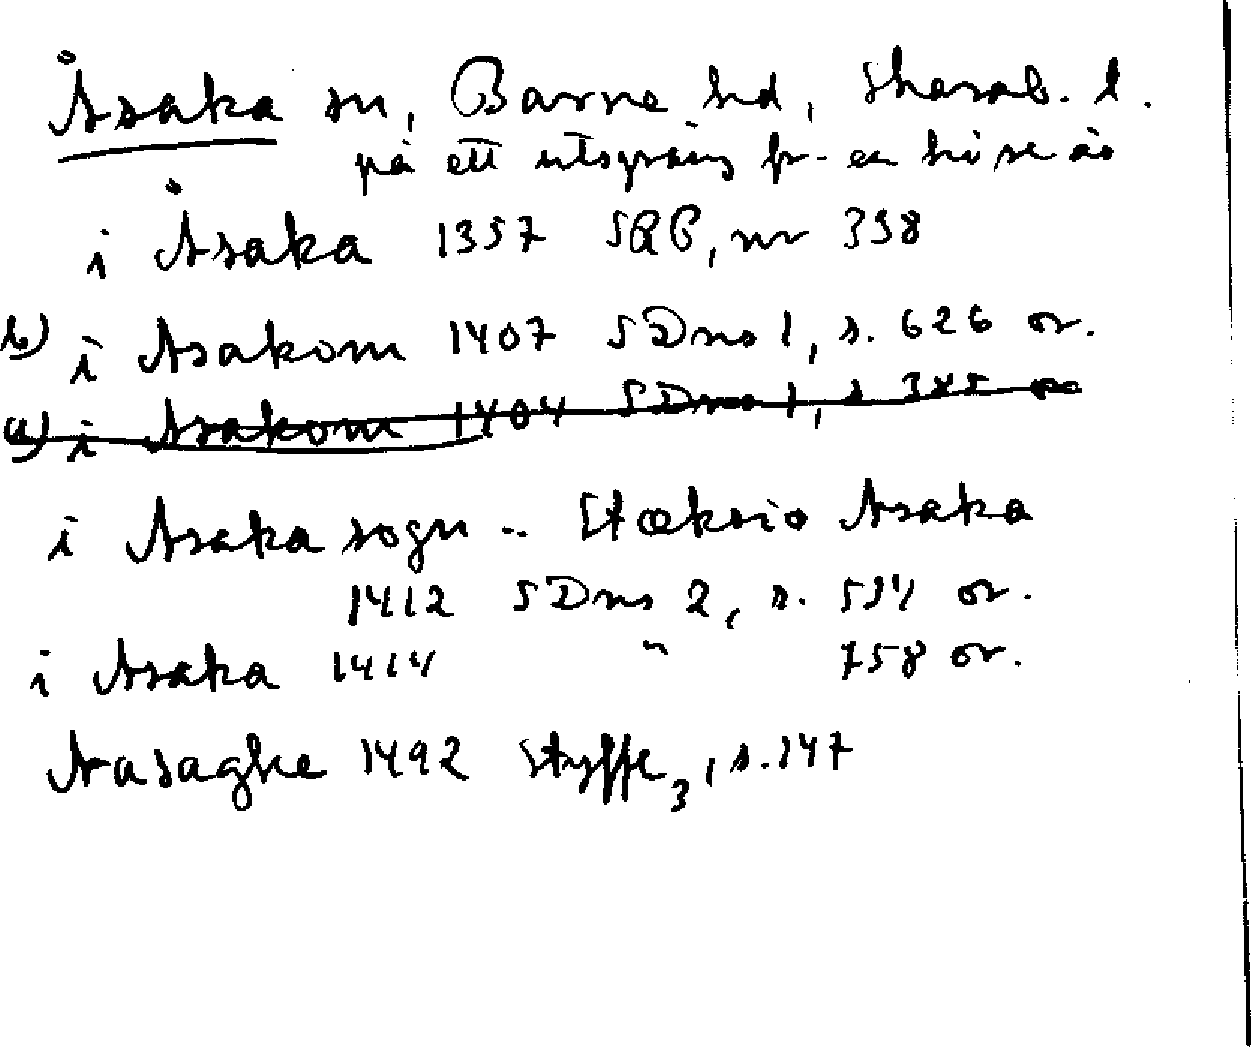 Åsaka sn, Barne hd, Skarab. l.
på ett utsprång fr. en höjd
i Åsaka 1357 SRP, nr 338
b) i Asakom 1407 SDns 1, s. 626 or.
a) i Asakom 1404 SDns 1, s 385 or
i Asaka sogn .. Stækxio Asaka
1412 SDns 2, s. 594 or.
i Asaka 1414 " 758 or.
Aasaghe 1492 Styffe3, s. 147